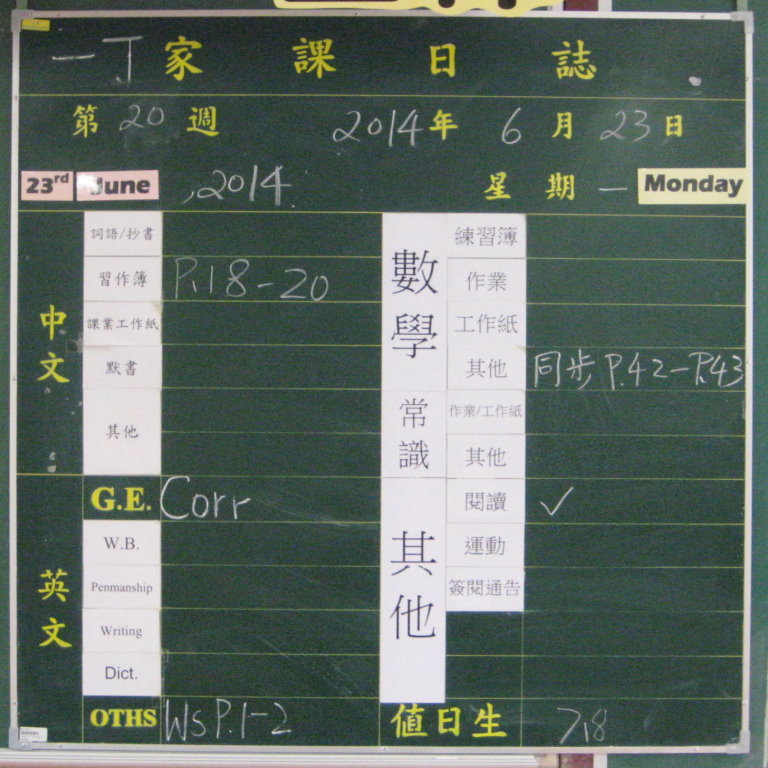 一丁家課日誌
第20週 2014年 6月 23日
23rd June , 2014. 星期一 Monday
中文
詞語/抄書
習作簿 P.18-20
課業工作紙
默書
其他
英文
G.E. Corr
W.B.
Penmanship
Writing
Dict.
OTHS WS P.1-2
數學
練習簿
作業
工作紙
其他 同步 P.42-P.43
常識
作業/工作紙
其他
其他
閱讀 ✓
運動
簽閱通告
值日生 7,8